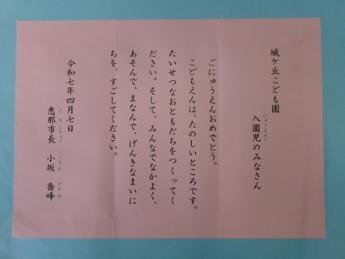 城ケ丘こども園
入園児のみなさん
ごにゅうえんおめでとう。
こどもえんは、たのしいところです。
たいせつなおともだちをつくってく
ださい。そして、みんなでなかよく、
あそんで、まなんで、げんきなまいに
ちを、すごしてください。
令和七年四月七日
恵那市長 小坂 喬峰